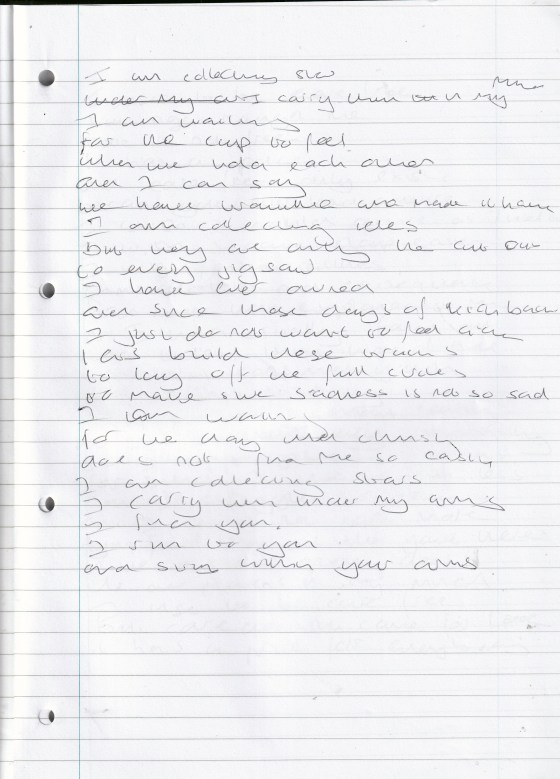 I am collecting
under my arms I carry them in my
I am waiting
for the cup to feel
when we hold each other
and I can say
we have and made it home
I am collecting
But they are only the cut out
to every jigsaw
I have ever owned
and since those days of
I just do not want to feel
build these
to lay off the full circles
to make sure sadness is not so sad
I am waiting
for the day that clumsy
does not find me so easily
I am collecting stars
I carry them under my arms
I find you.
I run to you
and within your arms